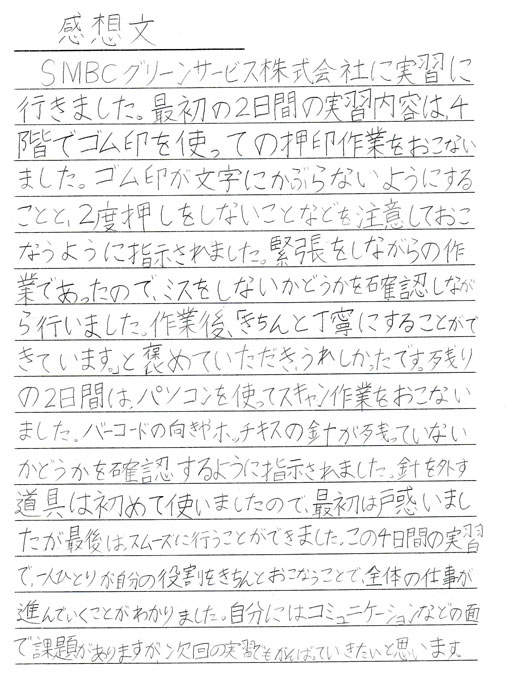 感想文
SMBCグリーンサービス株式会社に実習に
行きました。最初の2日間の実習内容は、4
階でゴム印を使っての押印作業をおこない
ました。ゴム印が文字にかぶらないようにする
ことと、2度押しをしないことなどを注意しておこ
なうように指示されました。緊張をしながらの作
業であったので、ミスをしないかどうかを確認しなが
ら行いました。作業後、「きちんと丁寧にすることがで
きています。」と褒めていただき、うれしかったです。残り
の2日間は、パソコンを使ってスキャン作業をおこない
ました。バーコードの向きやホッチキスの針が残っていない
かどうかを確認するように指示されました。針を外す
道具は初めて使いましたので、最初は戸惑いまし
たが最後は、スムーズに行うことができました。この4日間の実習
で、一人ひとりが自分の役割をきちんとおこなうことで、全体の仕事が
進んでいくことがわかりました。自分にはコミュニケーションなどの面
で課題がありますが、次回の実習でもがんばっていきたいと思います。